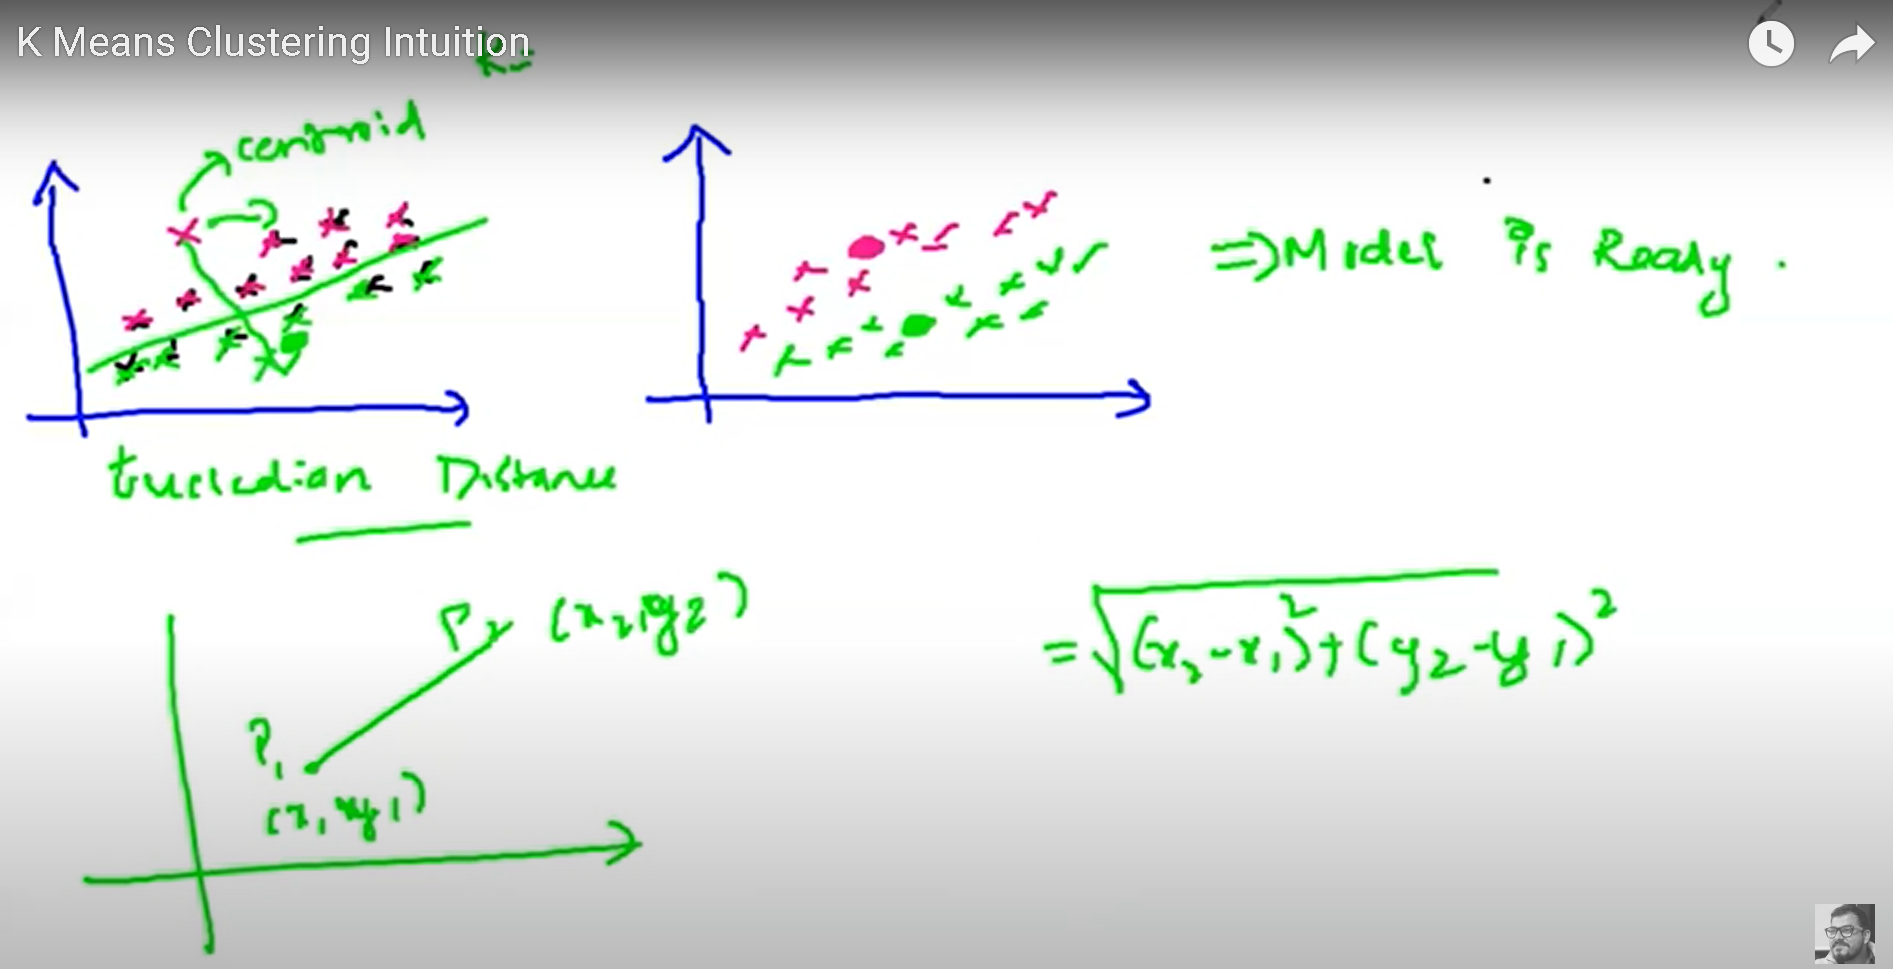 K Means Clustering Intuition
K=
centroid
⇒ Model is Ready.
Eucledian Distance
P2 (x2, y2)
= √(x2-x1)²+(y2-y1)²
P1
(x1, y1)